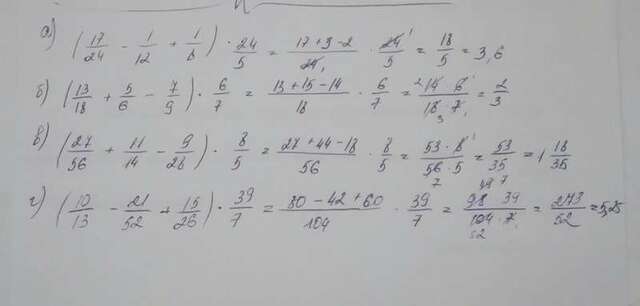 а) (17/24 - 1/12 + 1/8) · 24/5 = (17+3-2)/24 · 24/5 = 18/5 = 3,6
б) (13/18 + 5/6 - 7/9) · 6/7 = (13+15-14)/18 · 6/7 = (14 · 6)/(18 · 7) = 2/3
в) (27/56 + 11/14 - 9/28) · 8/5 = (27+44-18)/56 · 8/5 = (53 · 8)/(56 · 5) = 53/35 = 1 18/35
г) (10/13 - 21/52 + 15/26) · 39/7 = (80 - 42 + 60)/104 · 39/7 = (98 39)/(104 · 7) = 273/52 = 5,25